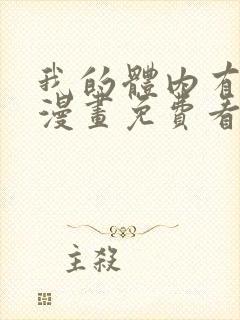 我的體內有
漫畫免費看
主殺